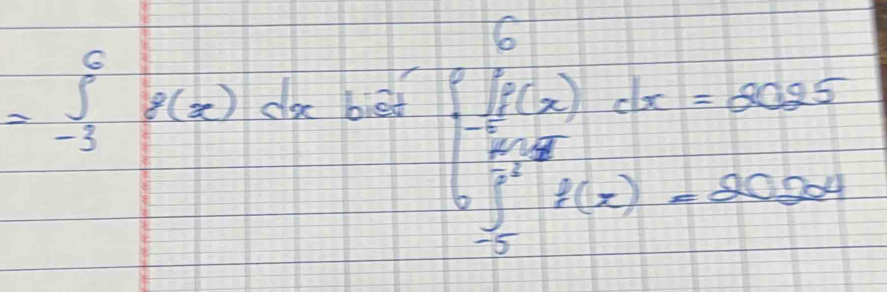 = ∫_{-3}^{6} f(x) dx biết { ∫_{-5}^{6} f(x) dx = 2025
∫_{-5}^{-2} f(x) = 2024